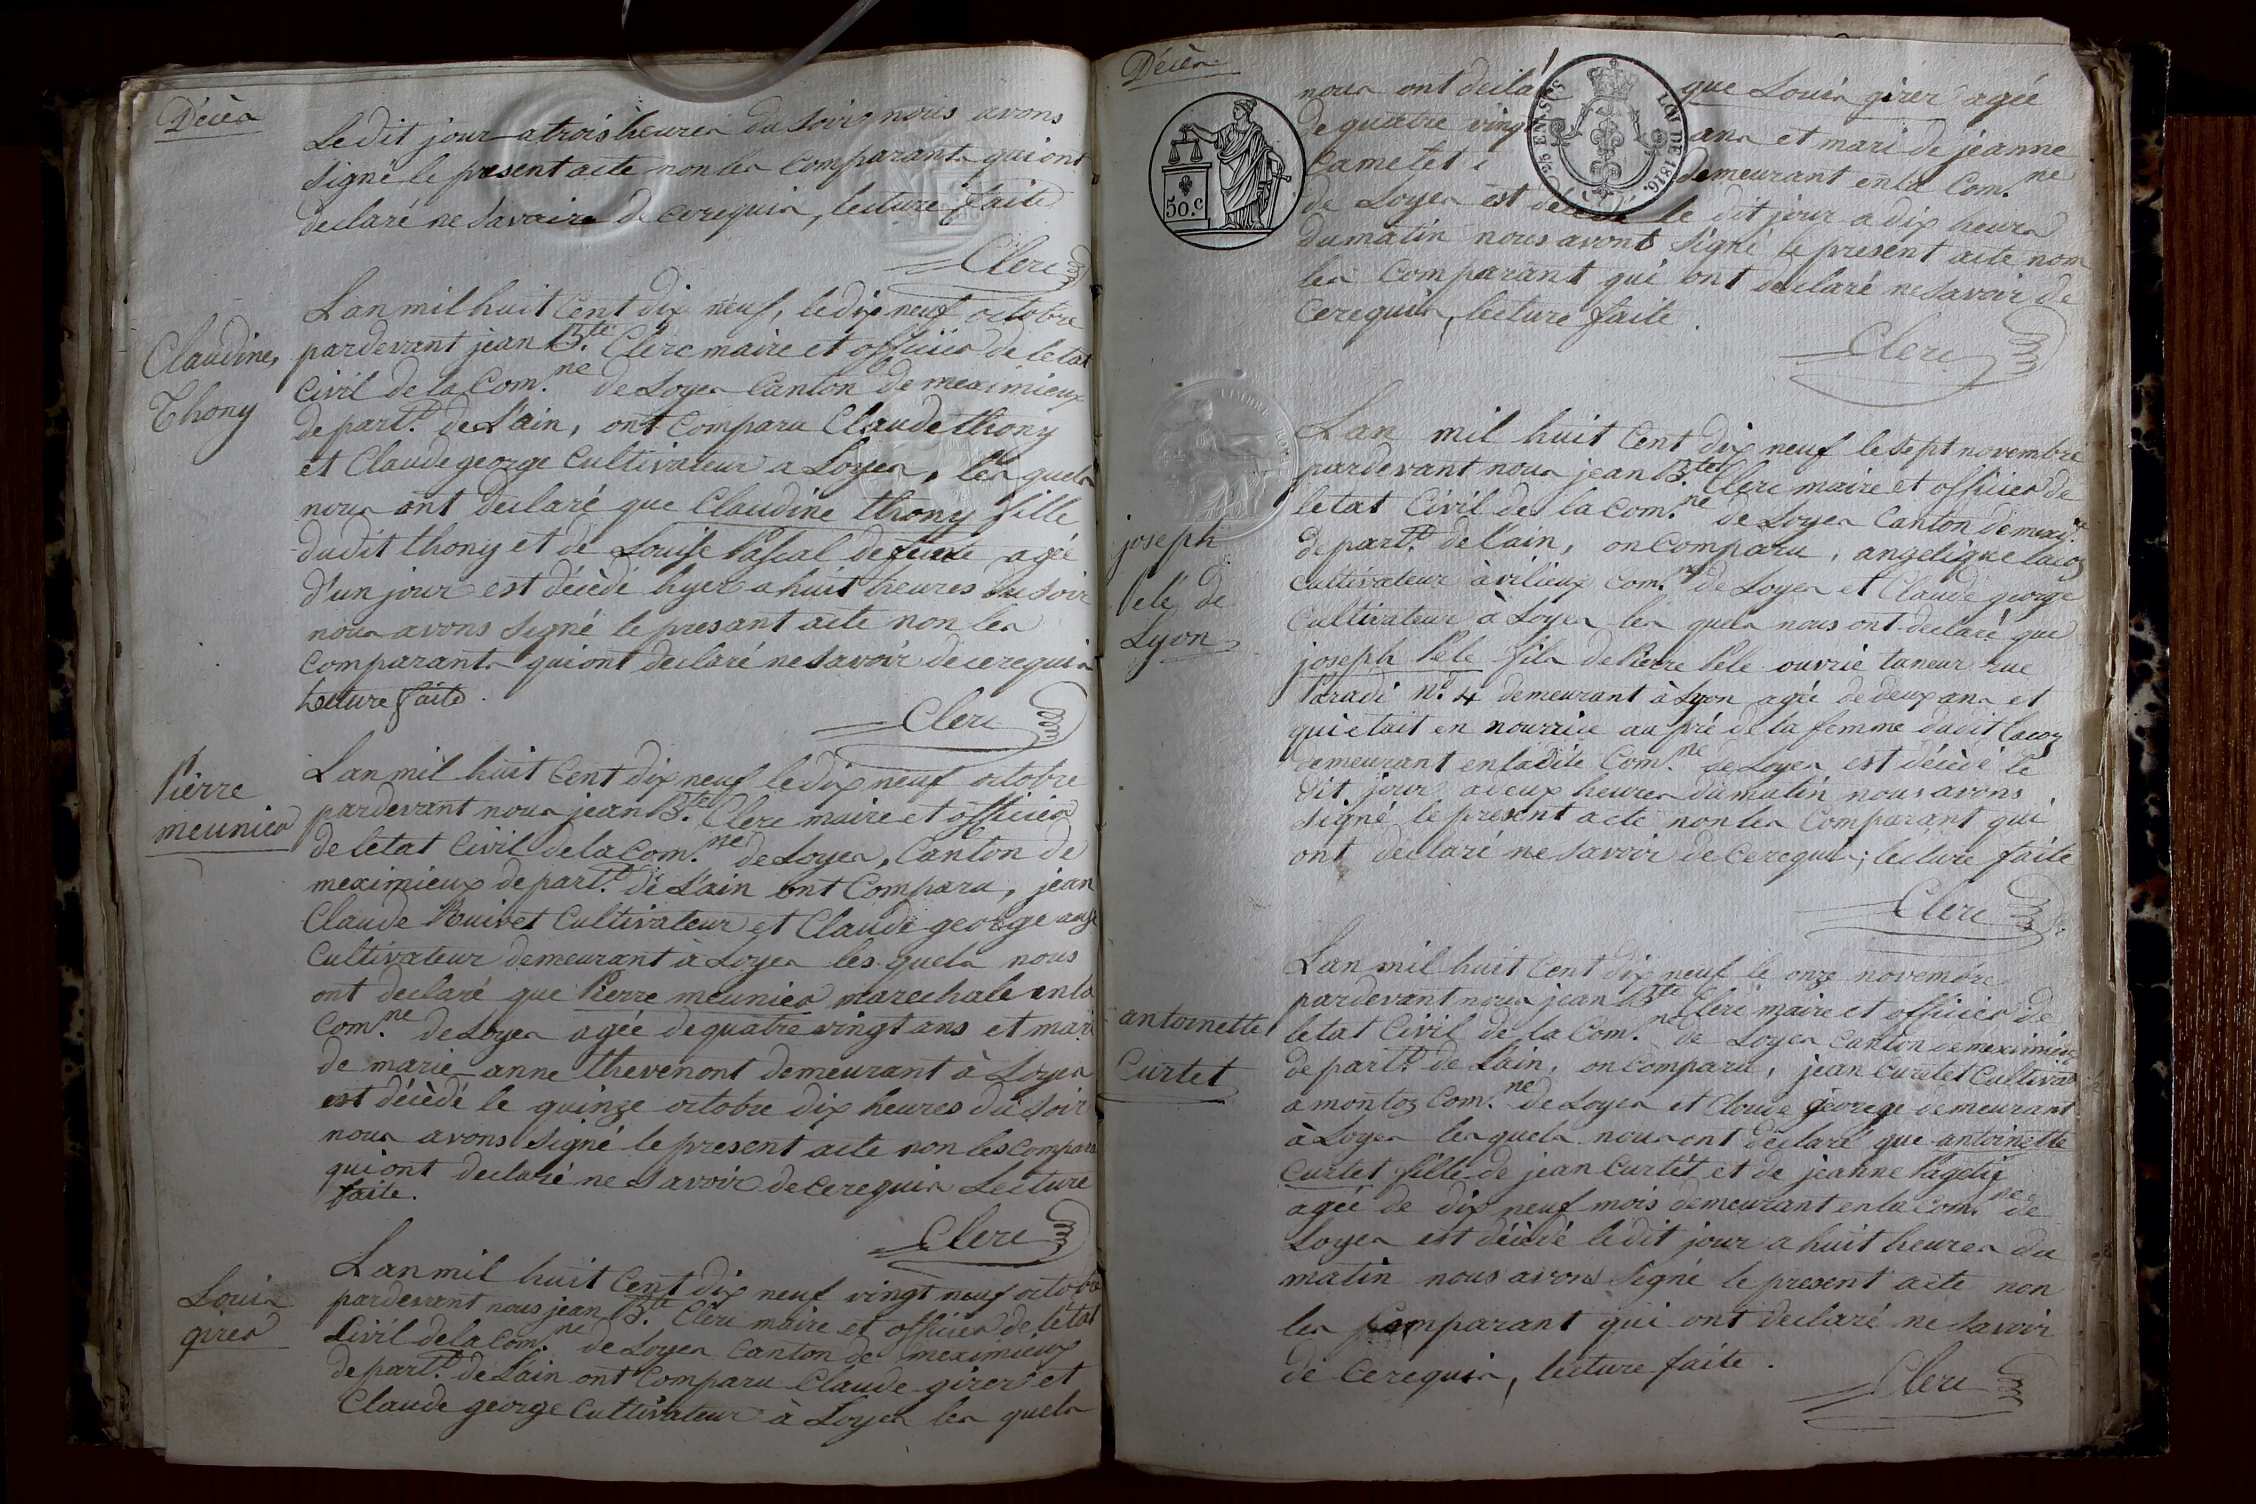 Décès
Le dit jour a trois heures du soir nous avons
signé le present acte non les comparants qui ont
declaré ne savoire de cerequis, lecture faite
Clerc
Claudine,
Thony
L'an mil huit cent dix neuf, le dix neuf octobre
pardevant jean Bte. Clerc maire et officier de letat
Civil de la Com.ne de Loyes Canton de meximieux
depart.t de L'ain, ont comparu Claude thony
et Claude george Cultivateur a Loyes, les quels
nous ont declaré que Claudine thony fille
dudit thony et de Louise Pascal defeinte agée
d'un jour est décèdé hyer a huit heures du soir
nous avons signé le presant acte non les
comparants qui ont declaré ne savoir de cerequis
Lecture faite.
Clerc
Pierre
meunier
L'an mil huit Cent dix neuf le dix neuf octobre
pardevant nous jean Bte. Clerc maire et officier
de letat Civil de la Com.ne de Loyes, Canton de
meximieux depart.t de L'ain ont comparu, jean
Claude Ruivet Cultivateur et Claude george
Cultivateur demeurant à Loyes les quels nous
ont declaré que Pierre meunier marechale en la
Com.ne de Loyes agée de quatre vingt ans et mari
de marie anne thevenont demeurant à Loyes
est décèdé le quinze octobre dix heures du soir
nous avons signé le present acte non les compara
qui ont declaré ne savoir de cerequis Lecture
faite.
Clerc
Louis
girer
L'an mil huit Cent dix neuf vingt neuf octobre
pardevant nous jean Bte. Clerc maire et officier de létat
Civil de la Com.ne de Loyes Canton de meximieux
depart.t de L'ain ont comparu Claude girer et
Claude george Cultivateur à Loyes les quels
Décès
50.c
LOI DE 1816.
nous ont decla que Louis girer agée
de quatre ving ans et mari de jeanne
demeurant en la Com.ne
de Loyes est décédé le dit jour a dix heures
du matin nous avons signé le present acte non
les comparant qui ont declaré ne savoir de
cerequis, lecture faite.
Clerc
joseph
Pelé de
Lyon
L'an mil huit Cent dix neuf le sept novembre
pardevant nous jean Bte. Clerc maire et officier de
letat Civil de la Com.ne de Loyes Canton de mexi.x
depart.t de l'ain, on comparu, angelique lacoz
cultivateur à vilieux com.ne de Loyes et Claude george
Cultivateur à Loyes les quels nous ont declaré que
joseph Pele fils de Pierre Pele ouvrié taneur rue
Paradi n°. 4 demeurant à Lyon agée de deux ans et
qui était en nourrice au pré de la femme dudit lacoz
demeurant en ladite Com.ne de Loyes est décèdé le
dit jour a deux heures du matin nous avons
signé le present acte non les comparant qui
ont declaré ne savoir de cerequis; lecture faite
Clerc
antoinette
Curtet
L'an mil huit Cent dix neuf le onze novembre
pardevant nous jean Bte Clerc maire et officier de
letat Civil de la Com.ne de Loyes Canton de meximieux
depart.t de L'ain, on comparu, jean curtet Cultiva
a montoz Com.ne de Loyes et Cloude george demeurant
à Loyes les quels nous ont declaré que antoinette
Curtet fille de jean Curtet et de jeanne Pagetig
agée de dix neuf mois demeurant en la Com.ne de
Loyes est décèdé le dit jour a huit heures du
matin nous avons signé le present acte non
les comparant qui ont declaré ne savoir
de cerequis, lecture faite.
Clerc